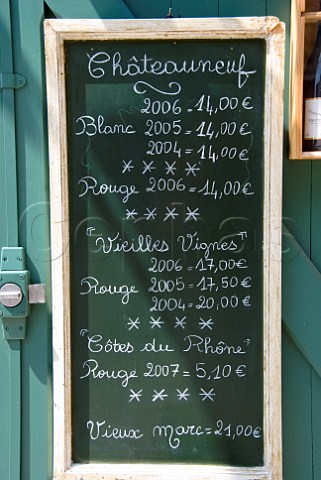 Châteauneuf
2006 = 14,00€
Blanc 2005 = 14,00€
2004 = 14,00€
* * * *
Rouge 2006 = 14,00€
* * * *
"Vieilles Vignes"
2006 = 17,00€
Rouge 2005 = 17,50€
2004 = 20,00€
* * * *
"Côtes du Rhône"
Rouge 2007 = 5,10€
* * * *
Vieux marc = 21,00€